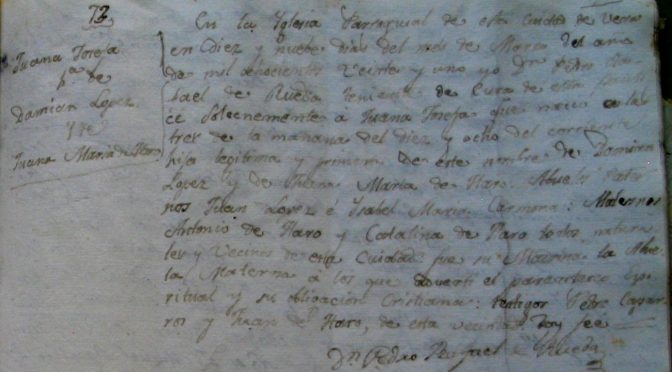 72
Juana Josefa
h.ª de
Damian Lopez
y de
Juana Maria de Haro
En la Iglesia Parroquial de esta Ciudad de Vera
en Diez y nuebe Dias del mes de Marzo del año
de mil ochocientos Veinte y uno yo Dn Pedro Ra-
fael de Rueda Teniente de Cura de esta
ce solemnemente a Juana Josefa que nacio a las
tres de la mañana del diez y ocho del corriente
hija legitima y primera de este nombre de Damian
Lopez y de Juana Maria de Haro. Abuelos Pater
nos Juan Lopez é Ysabel Maria Carmona: Maternos
Antonio de Haro y Catalina de Paro todos natura
les y Vecinos de esta Cuidad: fue su Madrina la Abue
la Materna á los que adverti el parentesco Espi
ritual y su obligacion Cristiana: testigos Pedro Capar
ros y Juan de Haro, de esta vecindad doy fee
Dn Pedro Rafael de Rueda